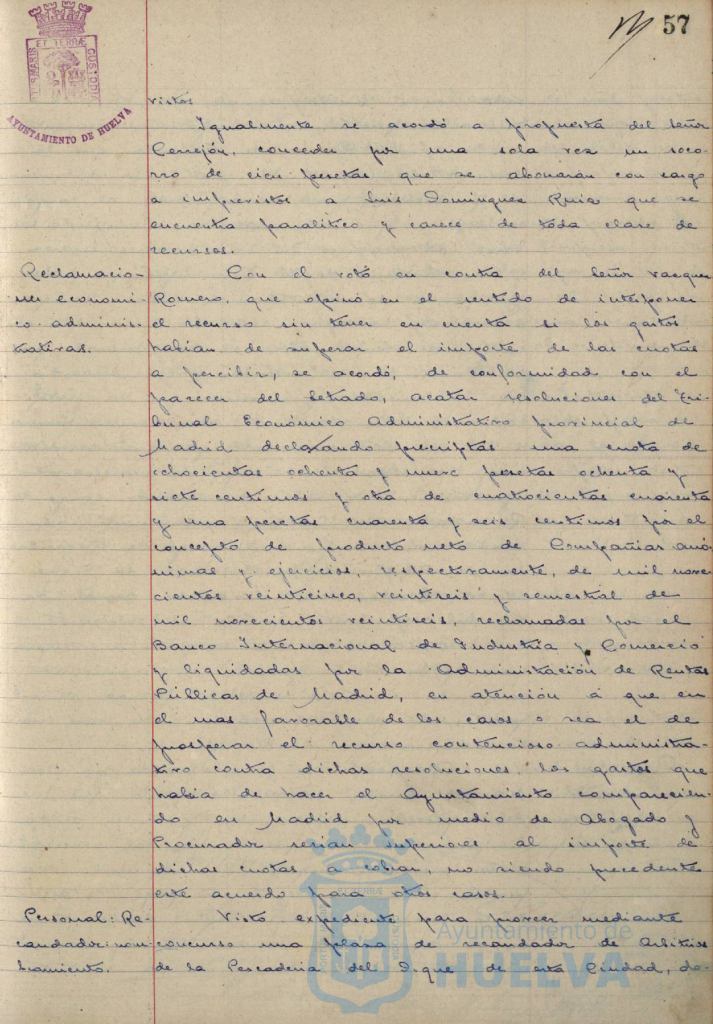 57
PORTUS MARIS ET TERRÆ CUSTODIA
AYUNTAMIENTO DE HUELVA
vistos
Igualmente se acordó a propuesta del Señor
Cerrejón, conceder por una sola vez un soco-
rro de cien pesetas que se abonarán con cargo
a imprevistos a Luis Dominguez Ruiz que se
encuentra paralitico y carece de toda clase de
recursos.
Reclamacio-
nes economi-
co-adminis-
trativas.
Con el votó en contra del Señor Vazquez
Romero, que opinó en el sentido de interponer
el recurso sin tener en cuenta si los gastos
habian de superar el importe de las cuotas
a percibir, se acordó, de conformidad con el
parecer del Letrado, acatar resoluciones del Tri-
bunal Económico Administrativo provincial de
Madrid declarando prescriptas una cuota de
ochocientas ochenta y nueve pesetas ochenta y
siete centimos y otra de cuatrocientas cuarenta
y una pesetas cuarenta y seis centimos por el
concepto de producto neto de Compañias anó-
nimas y ejercicios, respectivamente, de mil nove-
cientos veinticinco, veintiseis y semestral de
mil novecientos veintiseis, reclamadas por el
Banco Internacional de Industria y Comercio
y liquidadas por la Administración de Rentas
Públicas de Madrid, en atención á que en
el mas favorable de los casos o sea el de
prosperar el recurso contencioso administra-
tivo contra dichas resoluciones, los gastos que
habia de hacer el Ayuntamiento comparecien-
do en Madrid por medio de Abogado y
Procurador serian superiores al importe de
dichas cuotas a cobrar, no siendo precedente
este acuerdo para otros casos.
Personal: Re-
caudador: nom-
bramiento.
Visto expediente para proveer mediante
concurso una plaza de recaudador de Arbitrios
de la Pescaderia del Dique de esta Ciudad, do-
Ayuntamiento de
HUELVA